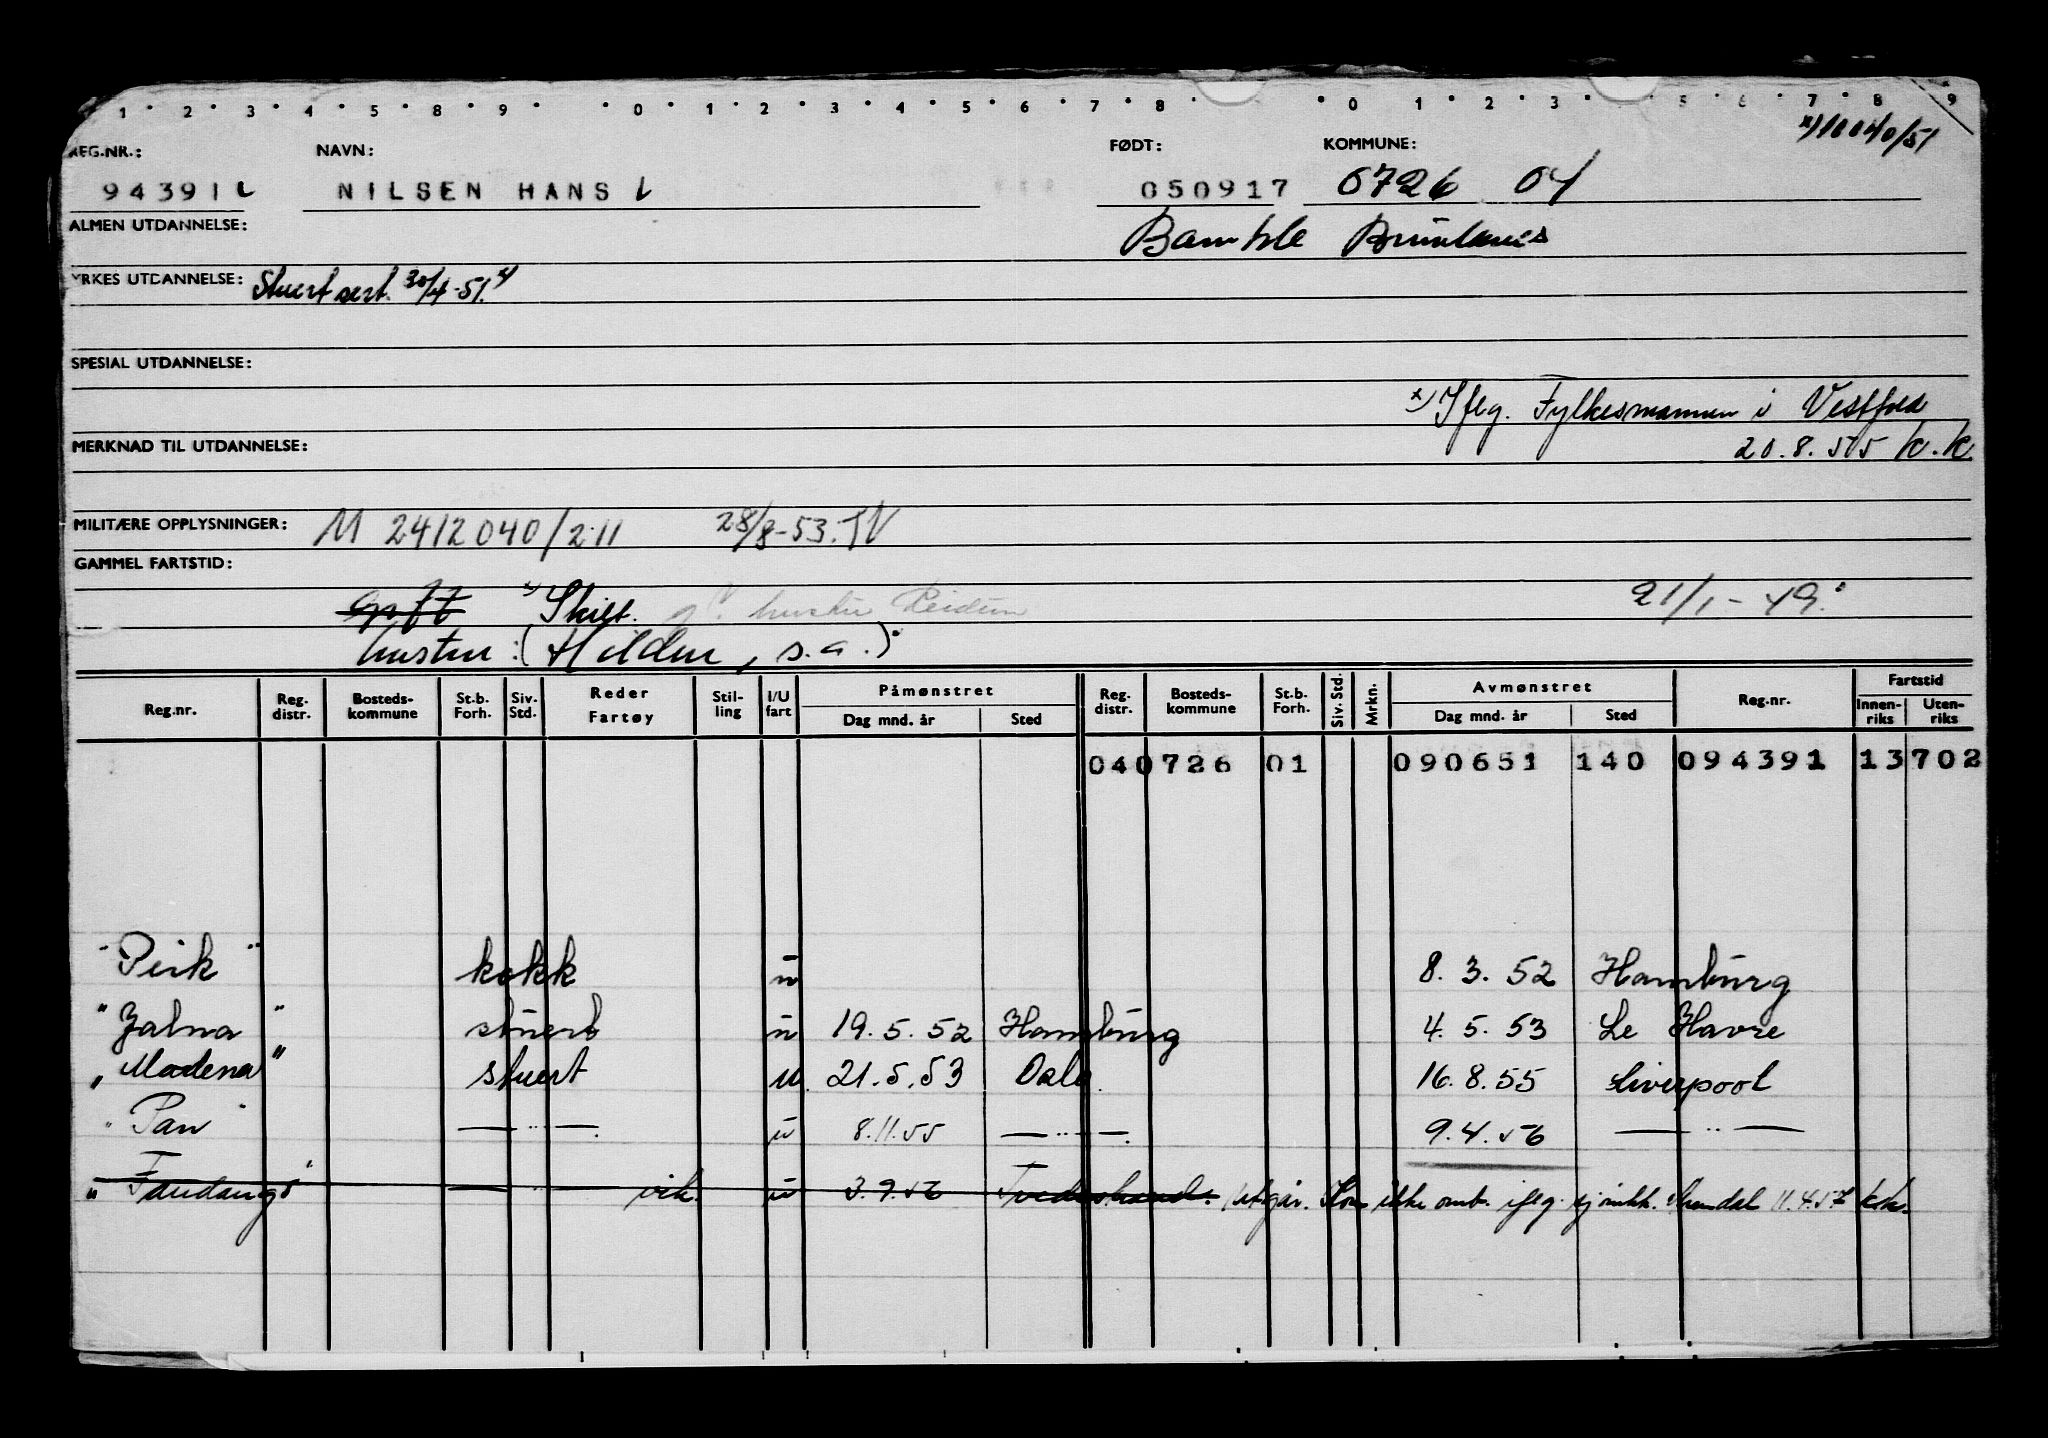 1 2 3 4 5 8 9 0 1 2 3 4 5 6 7 8 0 1 2 3 5 6 7 8 9
x) 10040/51
REG.NR.: NAVN: FØDT: KOMMUNE:
94391 NILSEN HANS 050917 0726 04
ALMEN UTDANNELSE: Bamble Brunlanes
YRKES UTDANNELSE: Stuert sert. 30/4-51.
SPESIAL UTDANNELSE:
x) Ifлg. Fylkesmannen i Vestfold
MERKNAD TIL UTDANNELSE: 20.8.55 k.k
MILITÆRE OPPLYSNINGER: M 2412040/211 28/8-53. TN
GAMMEL FARTSTID:
gift x) Skilt. hustru Reidun 21/1-49.
hustru: (Halden, s.a.)
Reg.nr. Reg. distr. Bosteds- kommune St.b. Forh. Siv. Std. Reder Fartøy Stil- ling I/U fart Påmønstret Dag mnd. år Sted Reg. distr. Bosteds- kommune St.b. Forh. Siv. Std. Mrkn. Avmønstret Dag mnd. år Sted Reg.nr. Fartstid Innen- riks Uten- riks
040726 01 090651 140 094391 13702
"Perk" kokk u 8. 3. 52 Hamburg
"Jalna" stuert u 19. 5. 52 Hamburg 4. 5. 53 Le Havre
"Modena" stuert u. 21.5.53 Oslo 16. 8. 55 Liverpool
"Pan" — " — u 8.11.55 — " — 9.4.56 — " —
"Fandango" — " — vik. u 3.9.56 Tvedestrand. Utgår. Kom ikke omb. Arendal 11.4.57 kk.